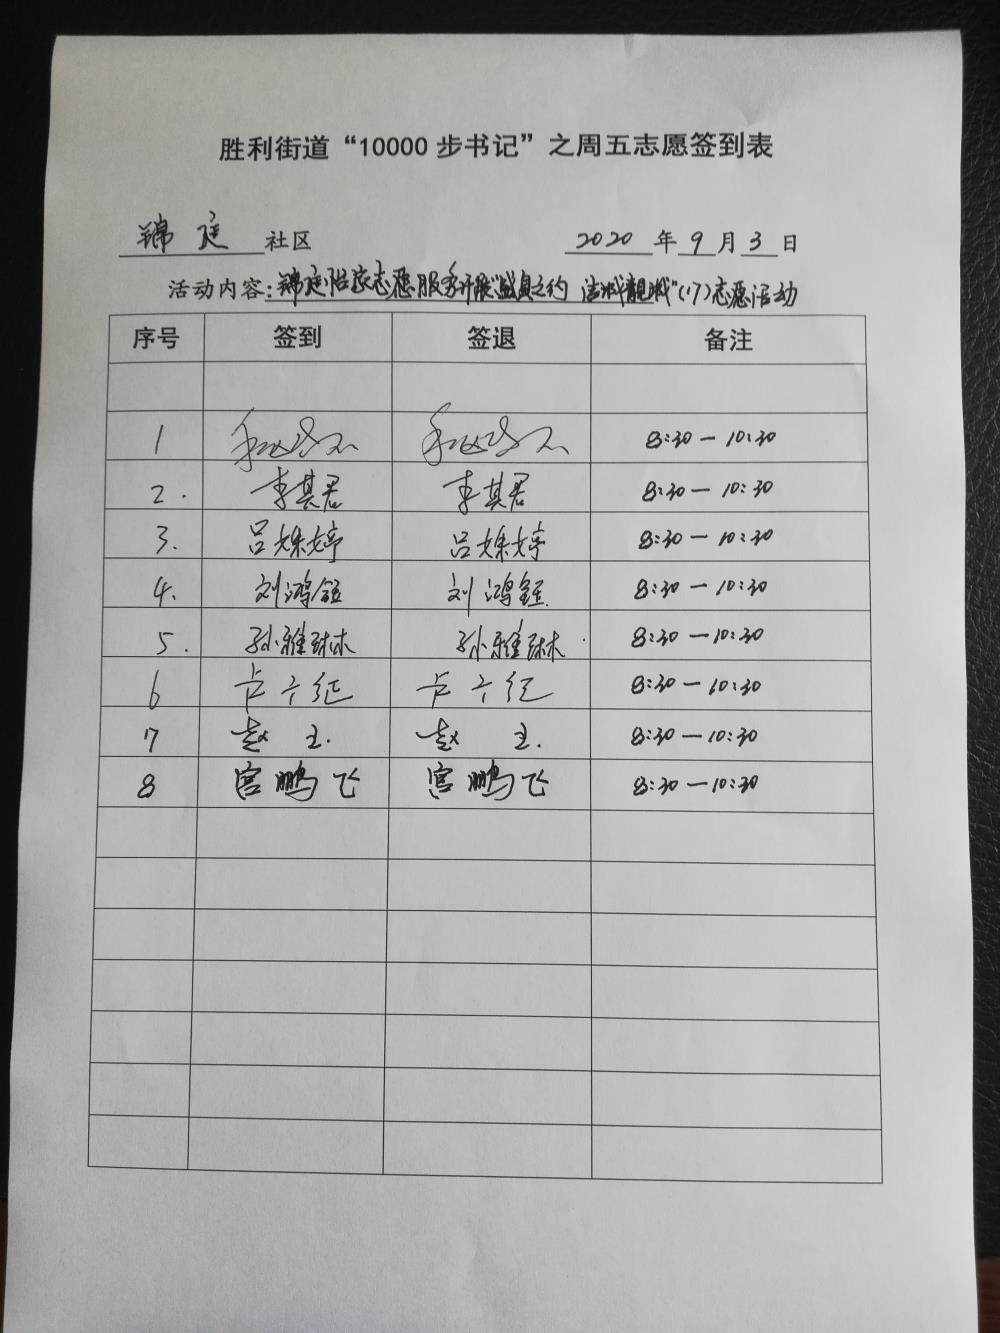 胜利街道“10000步书记”之周五志愿签到表
锦庭 社区 2020 年 9 月 3 日
活动内容：锦庭 志愿服务 开展“盛夏之约 洁城靓城”(17)志愿活动
序号 签到 签退 备注
1 8:30—10:30
2. 李其君 李其君 8:30—10:30
3. 吕姝婷 吕姝婷 8:30—10:30
4. 刘鸿钰 刘鸿钰 8:30—10:30
5. 孙雅琳 孙雅琳 8:30—10:30
6 8:30—10:30
7 赵主. 赵主. 8:30—10:30
8 宫鹏飞 宫鹏飞 8:30—10:30